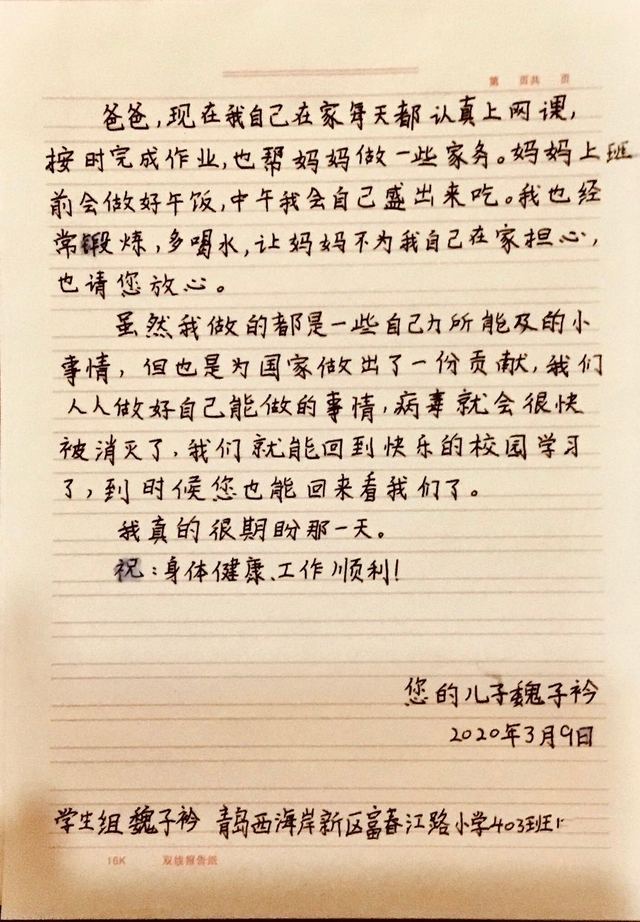 第 页共 页
爸爸,现在我自己在家每天都认真上网课,
按时完成作业,也帮妈妈做一些家务。妈妈上班
前会做好午饭,中午我会自己盛出来吃。我也经
常锻炼,多喝水,让妈妈不为我自己在家担心,
也请您放心。
虽然我做的都是一些自己力所能及的小
事情,但也是为国家做出了一份贡献,我们
人人做好自己能做的事情,病毒就会很快
被消灭了,我们就能回到快乐的校园学习
了,到时候您也能回来看我们了。
我真的很期盼那一天。
祝:身体健康、工作顺利!
您的儿子魏子衿
2020年3月9日
学生组 魏子衿 青岛西海岸新区富春江路小学403班
16K 双线报告纸